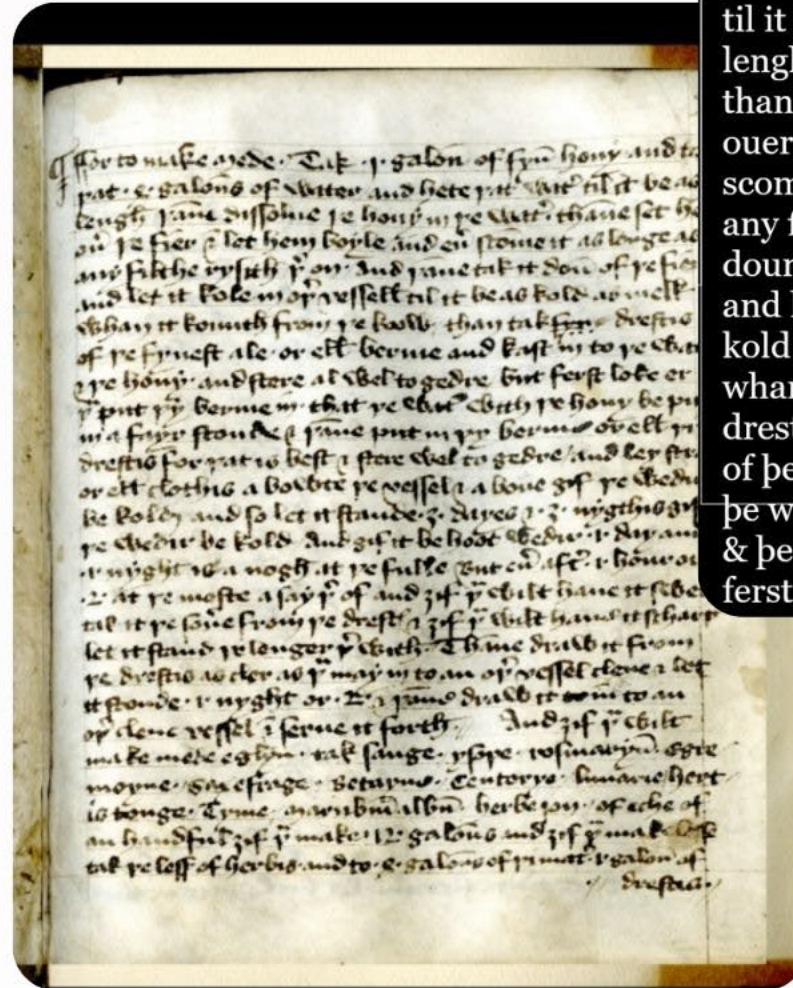 ffor to make mede. Tak .i. galon of fyn hony and to
þat .4. galons of water and hete þat wat' til it be as
lengh þane dissolue þe hony in þe wat'. thane set he
ou' þe fier & let hem boyle and eu' scome it as longe as
any filthe rysith þ' on. And þane tak it doun of þe fier
and let it kole in oþ' vessell til it be as kold as melk
whan it komith from þe koow. than tak drestis
of þe fynest ale or ell berme and kast in to þe wat
& þe hony. and stere al wel to gedre but ferst loke er
þu put þy berme in. that þe wat' with þe hony be pu
in a fayr stonde & þane put in þy berme or ell þi
drestis for þat is best & stere wel to gedre/ and ley stra
or ell clothis a bowte þe vessel & a boue gif þe wedir
be kold and so let it stande .3. dayes & .3. nygthis gif
þe wedir be kold And gif it be hoot wedir .i. day and
.i. nyght is a nogh at þe fulle But eu' aft' .i. hour or
.2. at þe moste a say þ' of and gif þu wilt haue it swe
tak it þe soner from þe drest' & gif þu wilt haue it scharp
let it stand þe lenger þ' with. Thane draw it from
þe drestis as cler as þu may in to an oþ' vessel clene & let
it stonde .i. nyght or .2. & þane draw it in to an
oþ' clene vessel & serue it forth And gif þu wilt
make mede eglyn. tak sauge. ysope. rosmaryn. Egre
moyne. saxefrage. betayne. Centorye. lunarie hert
is tonge. Tyme. marubium album. herbe jon. of eche of
an handful gif þu make .12. galons and gif þu mak lesse
tak þe less of herbis. and to .4. galons of þi mat' .i. galon of
drestis.
til it
lengh
than
ouer
scom
any f
doun
and l
kold
whan
drest
of þe
þe w
& þe
ferst